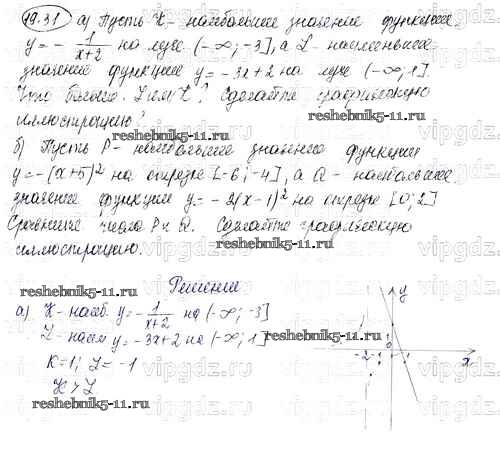 19.31 а) Пусть K - наибольшее значение функции
y = - 1/(x+2) на луче (-∞; -3], а L - наименьшее
значение функции y = - 3x+2 на луче (-∞; 1].
Что больше: L или K? Сделайте графическую
иллюстрацию.
reshebnik5-11.ru
reshebnik5-11.ru
б) Пусть P - наибольшее значение функции
y = -(x+5)² на отрезке [-6; -4], а Q - наибольшее
значение функции y = - 2(x-1)² на отрезке [0; 2]
Сравните числа P и Q. Сделайте графическую
иллюстрацию.
reshebnik5-11.ru
Решение
reshebnik5-11.ru
а) K - наиб. y = - 1/(x+2) на (-∞; -3]
L - наим y = -3x+2 на (-∞; 1]
reshebnik5-11.ru
K=1; L = -1
K > L
reshebnik5-11.ru
y
x
vipgdz.ru